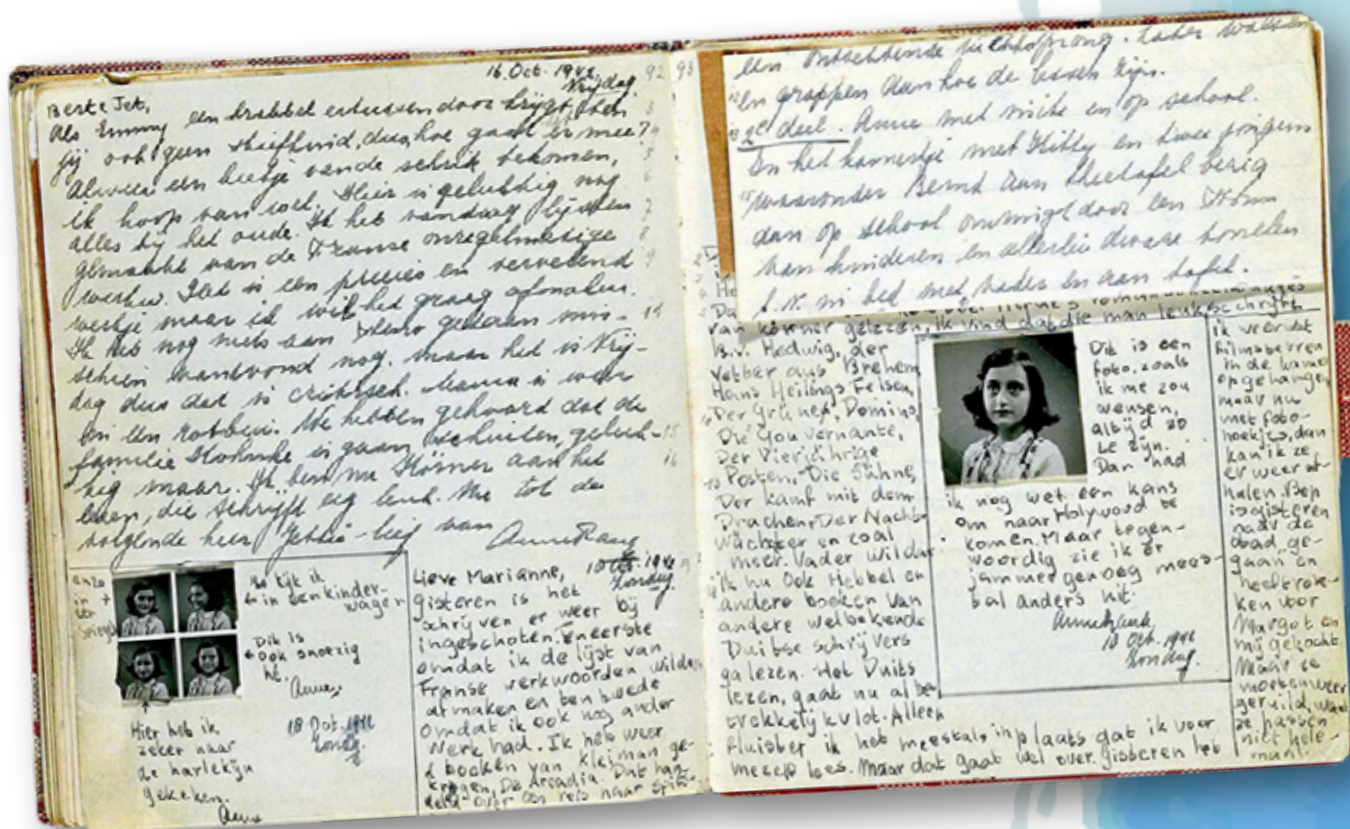 16 Oct. 1942
Vrijdag.
92 93
Beste Jet,
Als Emmy een krabbel ertussendoor krijgt, ben
jij ook geen stiefkind, dus hoe gaat er mee?
Alweer een beetje van de schrik bekomen,
ik hoop van wel. Hier is gelukkig nog
alles bij het oude. Ik heb vandaag lijsten
gemaakt van de Franse onregelmatige
werkw. Het is een precies en vervelend
werkje maar ik wil het graag afmaken.
Ik heb nog niets aan steno gedaan mis-
schien vanavond nog. maar het is Vrij-
dag dus dat is critisch. Mama is weer
We hebben gehoord dat de
familie is gaan schuilen, geluk-
kig maar. Ik ben nu Körner aan het
lezen, die schrijft erg leuk. Nu tot de
volgende keer Jettie-lief van
Anne Frank
enzo
in
een
spiegel
Zo kijk ik
in een kinder-
wagen
Dit is
ook snoezig
hè.
Anne.
18 Oct. 1942
Zondag.
Hier heb ik
zeker naar
de harlekijn
gekeken.
Anne
Lieve Marianne,
Zondag.
gisteren is het
schrijven er weer bij
ingeschoten. Eneerste
omdat ik de lijst van
Franse werkwoorden wilde
afmaken en ten twede
omdat ik ook nog ander
werk had. Ik heb weer
2 boeken van kleiman ge-
kregen, De Arcadia. Dat han-
deld over een reis naar Spits-
een ontzettende luchtsprong. Later
en grappen aan hoe de lessen zijn.
2e deel. Anne met en op school.
In het kamertje met Kitty en twee jongens
waaronder Bernd aan theetafel bezig
dan op school omringt door een
van kinderen en allerlei dwaze tonelen
b.v. in bed met vader en aan tafel.
van körner gelezen, ik vind dat die man leuk schrijft
B.v. Hedwig, der
Vetter aus Brehem,
Hans Heilings Felsen,
Der Grüne, Domino,
Die Gouvernante,
Der Vierjährige
Posten, Die Sühne,
Der Kampf mit dem
Drachen, Der Nacht-
wächter en zoal
meer. Vader wil dat
ik nu Ook Hebbel en
andere boeken van
andere welbekende
Duitse schrijvers
ga lezen. Het Duits
lezen, gaat nu al be-
trekkelijk vlot. Alleen
fluister ik het meestal, inplaats dat ik voor
mezelf lees. Maar dat gaat wel over. gisteren heb
Dit is een
foto, zoals
ik me zou
wensen,
altijd zo
te zijn.
Dan had
ik nog wel een kans
om naar Holywood te
komen. Maar tegen-
woordig zie ik er
jammer genoeg mees-
tal anders uit.
Annefrank.
10 Oct. 1942
Zondag.
ik weer wat
filmsterren
in de kamer
opgehangen
maar nu
met foto-
hoekjes, dan
kan ik ze
er weer af-
halen. Bep
is gisteren
naar de
stad ge-
gaan en
heeft rok-
ken voor
Margot en
mij gekocht.
Maar ze
moeten weer
geruild, want
ze passen
niet hele-
maal